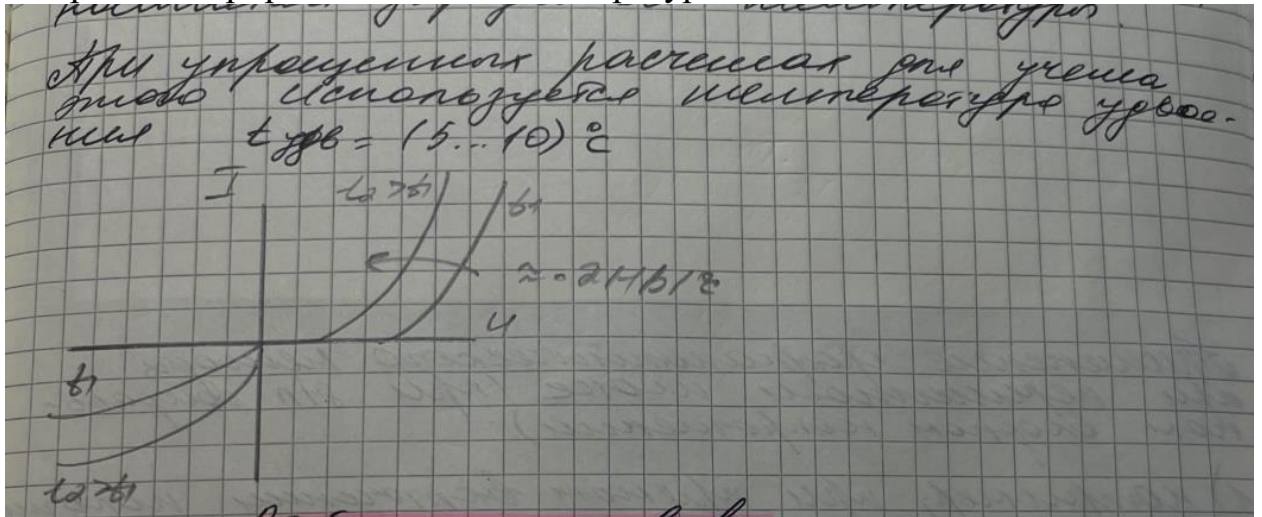 температуры.
При упрощенных расчетах для учета
этого используется температура удвое-
ния t удв = (5...10) °C
I
t2 > t1
t1
≈ -2 мВ/°C
U
t1
t2 > t1